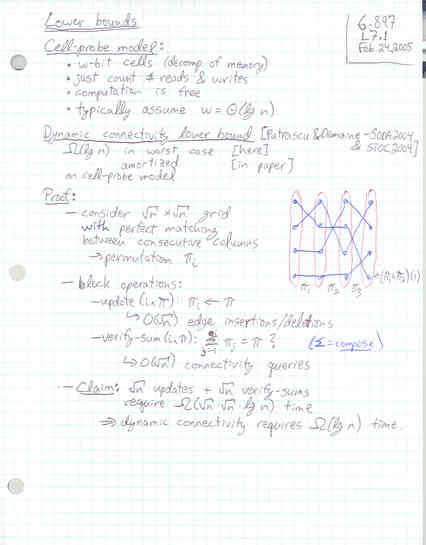 Lower bounds
6.897
L7.1
Feb. 24, 2005
Cell-probe model:
• w-bit cells (decomp of memory)
• just count # reads & writes
• computation is free
• typically assume w = Θ(lg n)
Dynamic connectivity lower bound [Patrascu & Demaine - SODA 2004
& STOC 2004]
Ω(lg n) in worst case [here]
amortized [in paper]
on cell-probe model
Proof:
- consider √n × √n grid
with perfect matching
between consecutive columns
→ permutation πi
π1 π2 π3
- block operations:
- update(i, π): πi ← π
↳ O(√n) edge insertions/deletions
- verify-sum(i, π): Σ j=1 πj = π ? (Σ = compose)
↳ O(√n) connectivity queries
- Claim: √n updates + √n verify-sums
require Ω(√n · √n · lg n) time
⇒ dynamic connectivity requires Ω(lg n) time.